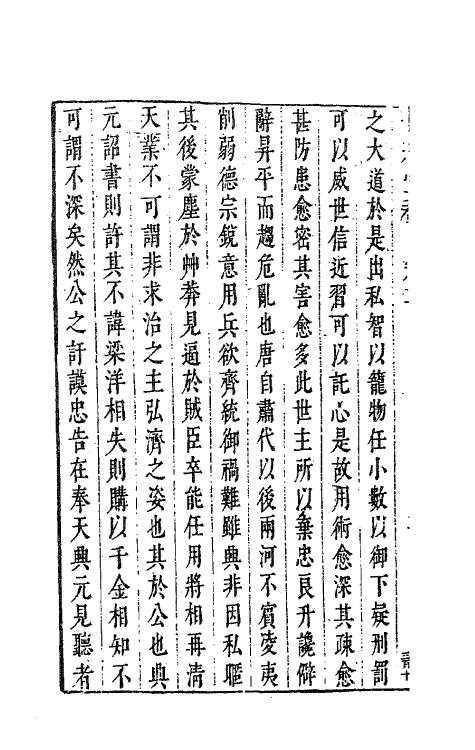 之大道於是出私智以籠物任小數以御下疑刑罰
可以威世信近習可以託心是故用術愈深其疎愈
甚防患愈密其害愈多此世主所以棄忠良升讒僻
辭昇平而趨危亂也唐自肅代以後兩河不賓凌夷
削弱德宗銳意用兵欲齊統御禍難雖興非因私暱
其後蒙塵於艸莽見逼於賊臣卒能任用將相再清
天業不可謂非求治之主弘濟之姿也其於公也與
元詔書則許其不諱梁洋相失則購以千金相知不
可謂不深矣然公之訏謨忠告在奉天興元見聽者